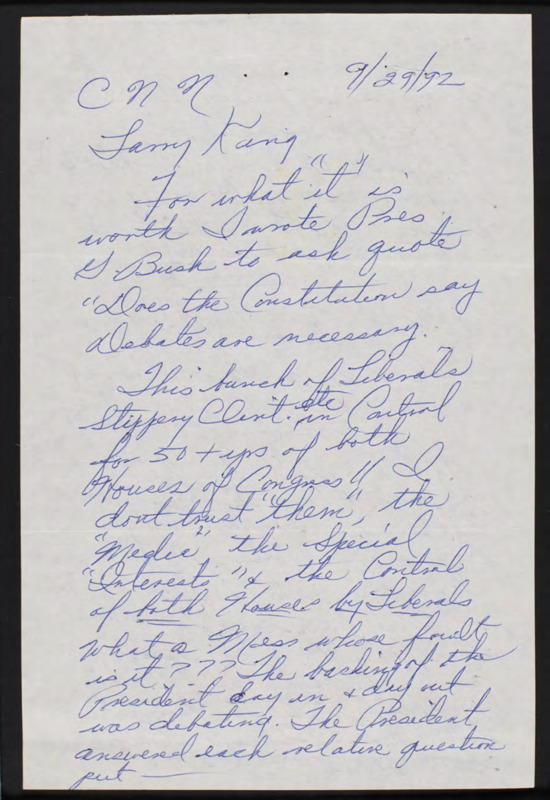 CNN 9/29/92
Larry King
For what "it" is
worth I wrote Pres
G Bush to ask quote
"Does the Constitution say
Debates are necessary."
This bunch of Liberals
Slippery Clint. etc in Control
for 50 + yrs of both
Houses of Congress!! I
dont trust "them", the
"Media", the Special
"Interests" & the Control
of both Houses by Liberals
What a Mess whose fault
is it??? The backing of the
President day in & day out
was debating. The President
answered each relative question
put —